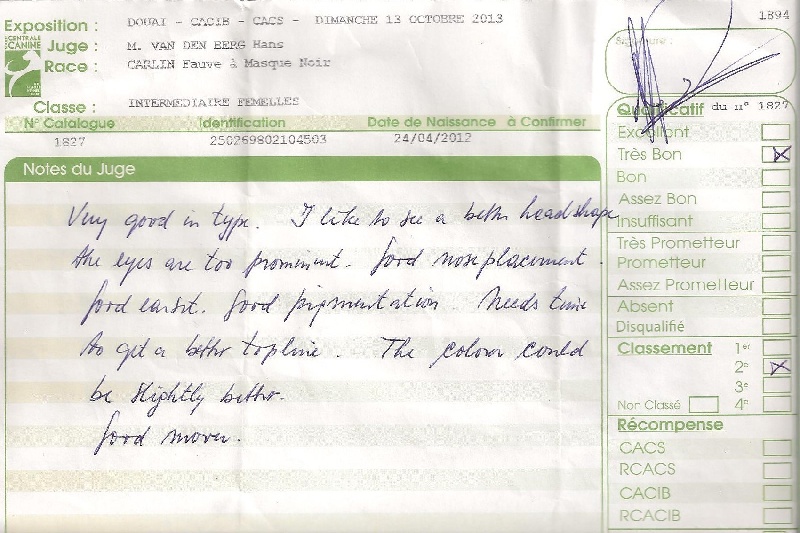 Exposition : DOUAI - CACIB - CACS - DIMANCHE 13 OCTOBRE 2013
1894
CENTRALE
CANINE
Juge : M. VAN DEN BERG Hans
Race : CARLIN Fauve à Masque Noir
Signature :
Classe : INTERMEDIAIRE FEMELLES
N° Catalogue Identification Date de Naissance à Confirmer
1827 250269802104503 24/04/2012
Notes du Juge
Very good in type. I like to see a bettr head shape
the eyes are too prominent. Good nose placement.
Good earset. Good pigmentation. Needs time
to get a bettr topline. The colour could
be slightly bettr.
Good mover.
Qualificatif du n° 1827
Excellent
Très Bon
Bon
Assez Bon
Insuffisant
Très Prometteur
Prometteur
Assez Prometteur
Absent
Disqualifié
Classement 1er
2e
3e
Non Classé 4e
Récompense
CACS
RCACS
CACIB
RCACIB